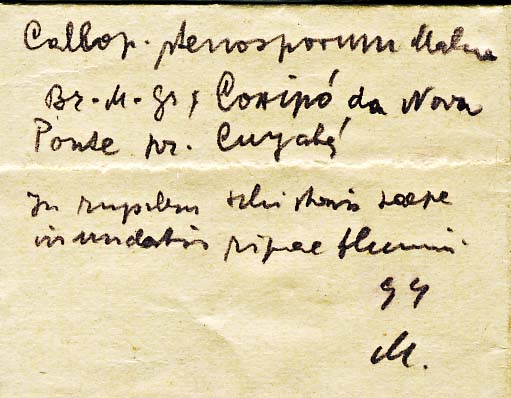 Callop. stenosporum Malme
Br. M. Gr, Coxipó da Nova
Ponte pr. Cuyabá
In rupibus schistosis saepe
inundatis ripae flumin.
94
M.